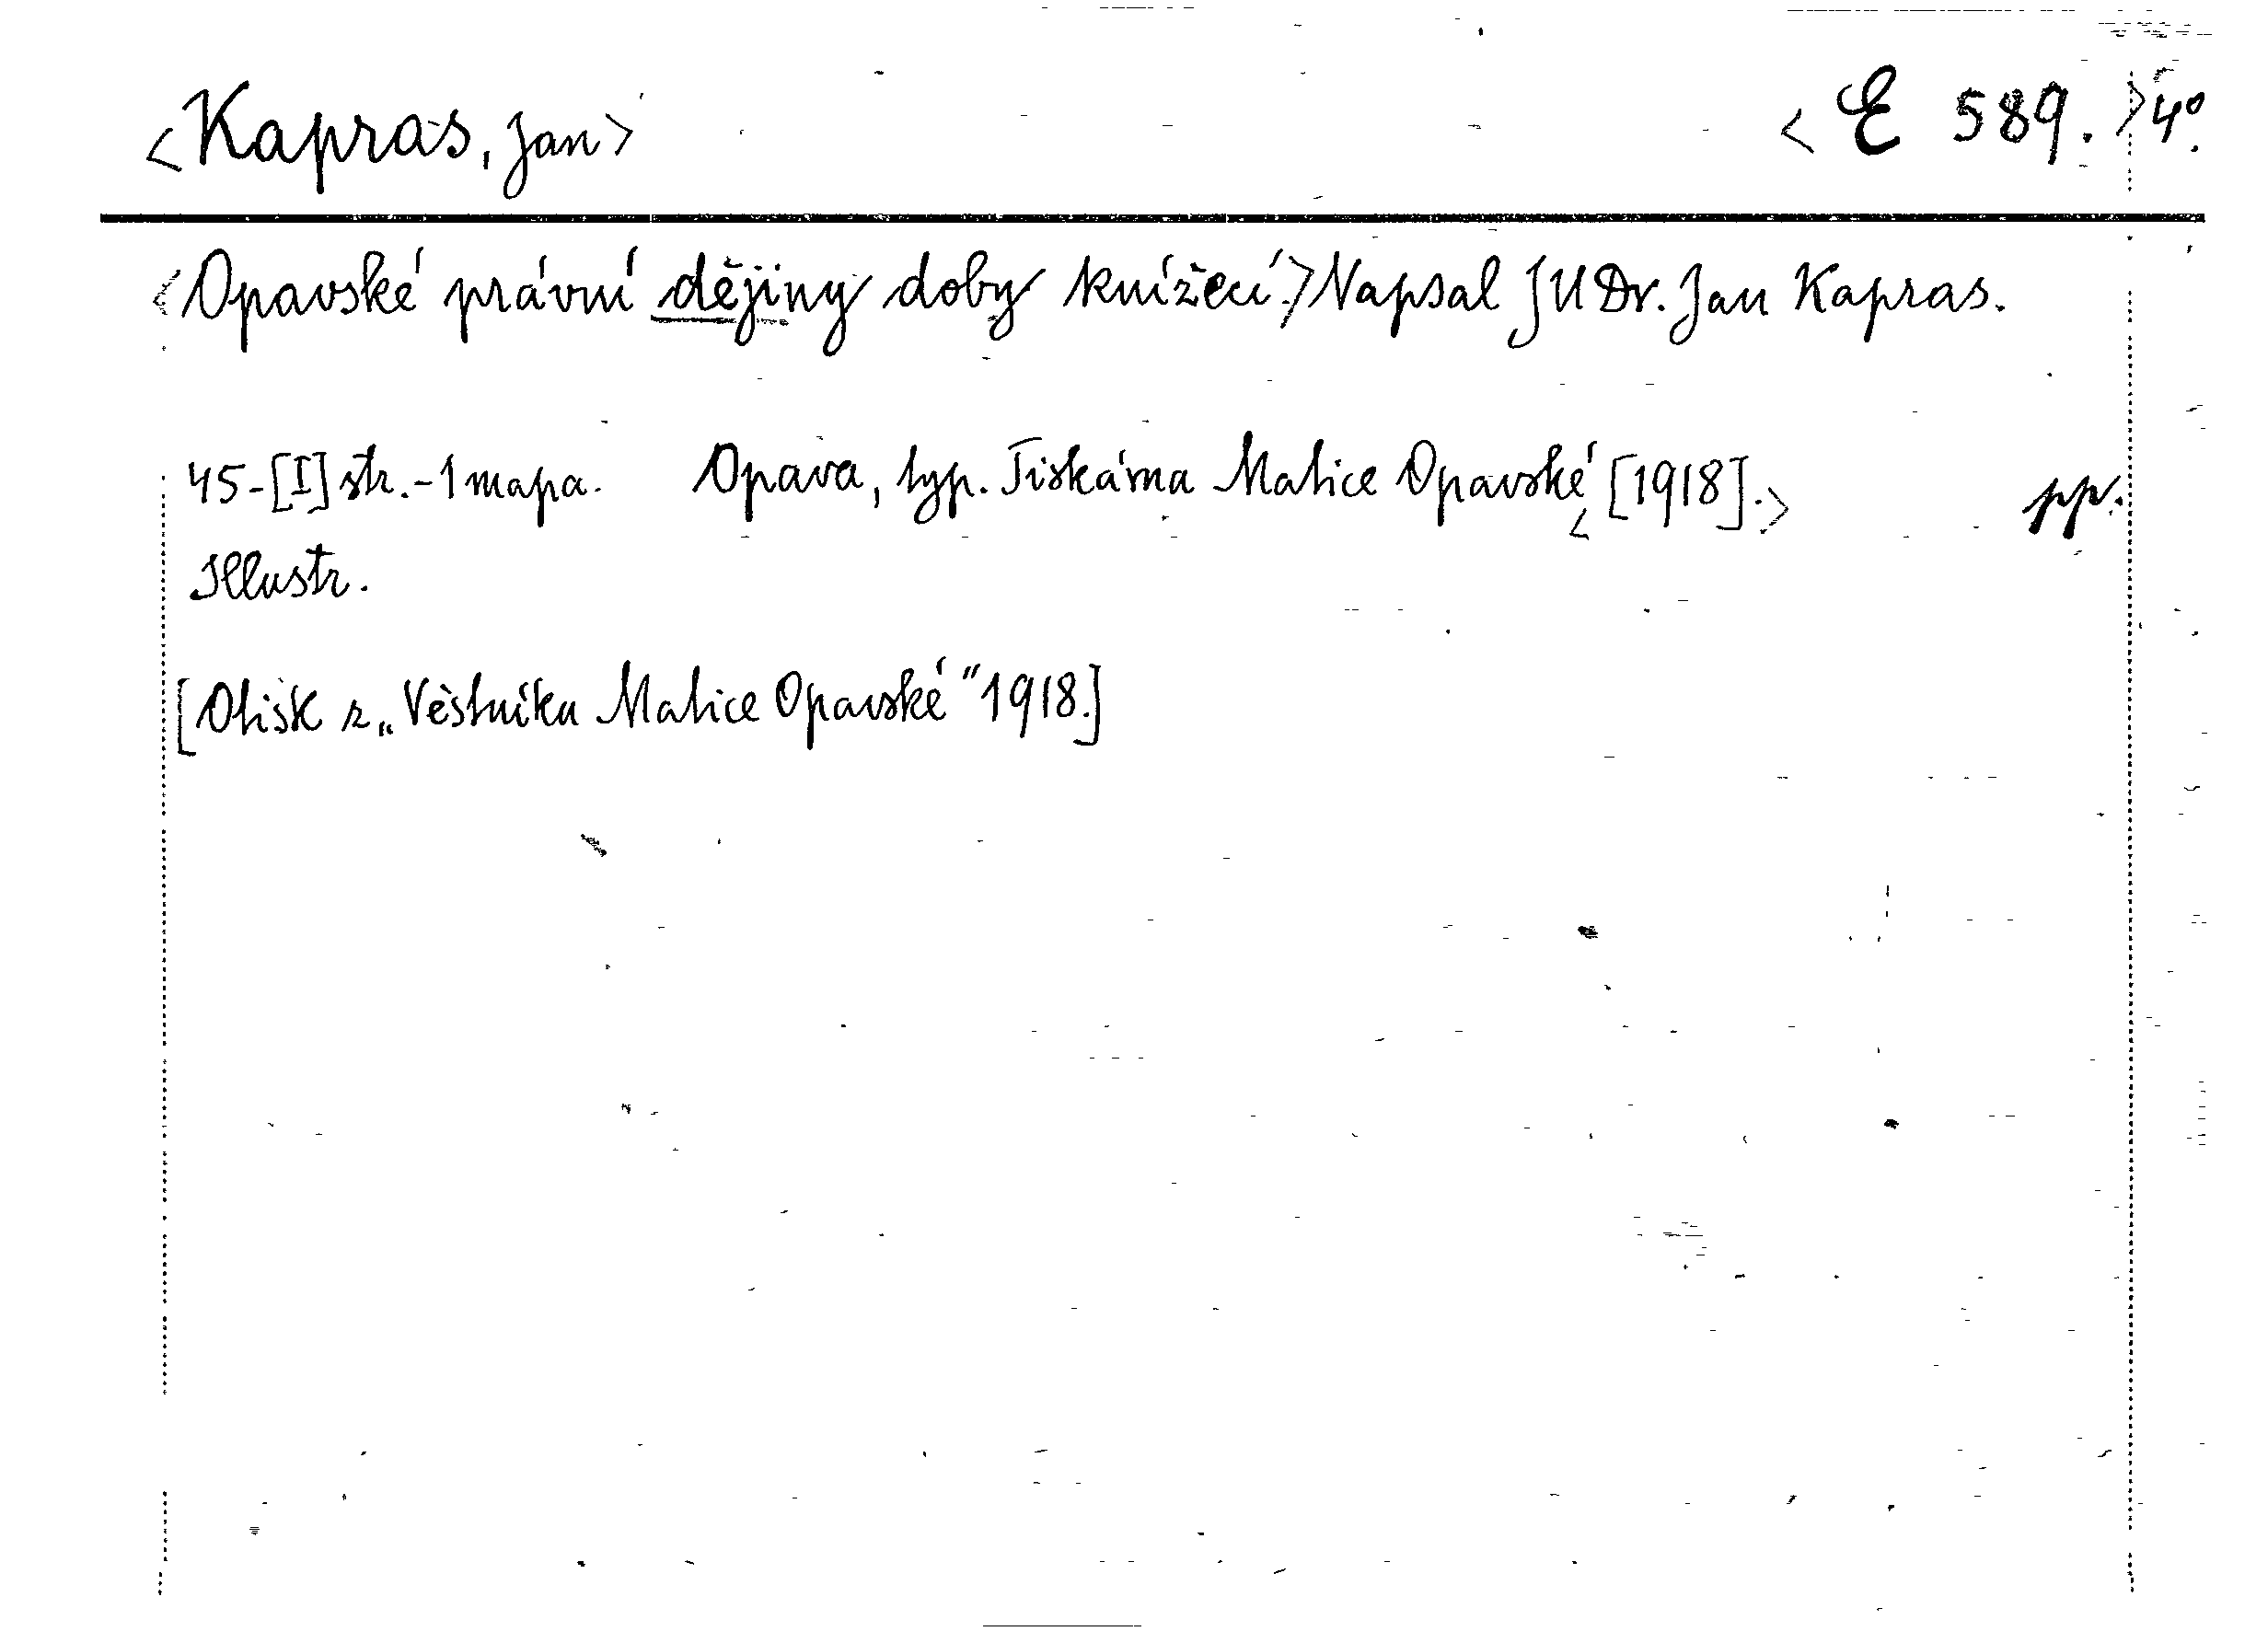 <Kapras, Jan> <E 589.>4º.
<Opavské právní dějiny doby knížecí.>Napsal JUDr. Jan Kapras.
45-[I] str.-1 mapa. Opava, typ. Tiskárna Matice Opavské <[1918].> pp.
Illustr.
[Otisk z „Věstníku Matice Opavské" 1918.]